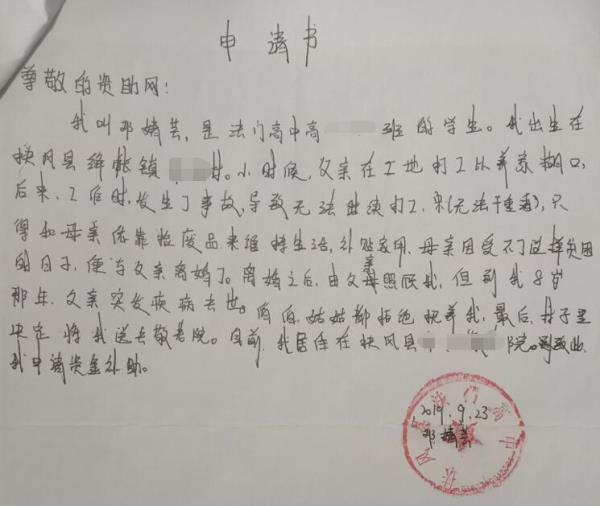 申请书
尊敬的资助网:
我叫邓婧芸,是法门高中高 班的学生。我出生在
扶风县绛帐镇 村。小时候,父亲在工地打工以养家糊口,
后来,工作时,发生了事故,导致无法继续打工,(无法干重活),只
得和母亲依靠捡废品来维持生活,补贴家用,母亲因受不了这样贫困
的日子,便与父亲离婚了。离婚之后,由父亲照顾我,但到我8岁
那年,父亲突发疾病去世。伯伯,姑姑都拒绝抚养我,最后,村子里
决定将我送去敬老院。目前,我居住在扶风县 院。
我申请资金补助。
2019.9.23
邓婧芸
扶风县法门高中